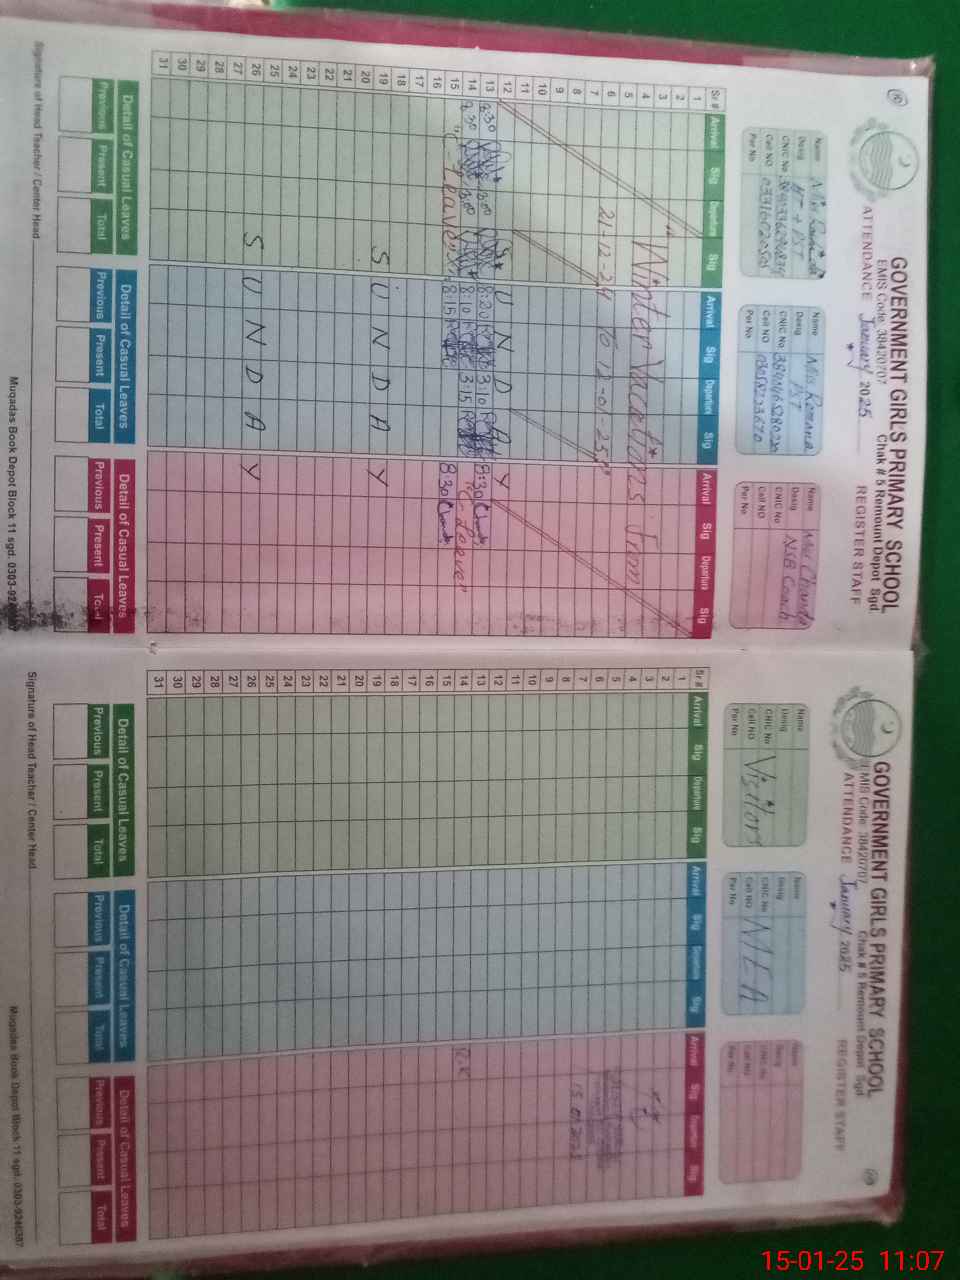 GOVERNMENT GIRLS PRIMARY SCHOOL
EMIS Code: 38420707 Chak # 5 Remount Depot Sgd.
ATTENDANCE January 2025 REGISTER STAFF
Name
Desig H-T + PST
CNIC No
Cell NO
Per No
Name Mis Romana
Desig PST
CNIC No
Cell NO
Per No
Name Mis Chanda
Desig NSB Coach
CNIC No
Cell NO
Per No
Sr # Arrival Sig Departure Sig Arrival Sig Departure Sig Arrival Sig Departure Sig
1
2
3
4 "Winter Vacations From
5
6 21-12-24 To 12-01-25"
7
8
9
10
11
12 S U N D A Y
13 8:30 1:30 8:20 3:10 8:30
14 8:30 1:30 8:10 3:15 "C-Leave"
15 "C-Leave" 8:15 8:30
16
17
18
19 S U N D A Y
20
21
22
23
24
25
26 S U N D A Y
27
28
29
30
31
Detail of Casual Leaves Detail of Casual Leaves Detail of Casual Leaves
Previous Present Total Previous Present Total Previous Present Total
Signature of Head Teacher / Center Head
Muqadas Book Depot Block 11 sgd. 0303-92
GOVERNMENT GIRLS PRIMARY SCHOOL
EMIS Code: 38420707 Chak # 5 Remount Depot Sgd.
ATTENDANCE January 2025 REGISTER STAFF
Name
Desig
CNIC No
Cell NO
Per No
Visitors
Name
Desig
CNIC No
Cell NO
Per No
MEA
Name
Desig
CNIC No
Cell NO
Per No
Sr # Arrival Sig Departure Sig Arrival Sig Departure Sig Arrival Sig Departure Sig
1
2
3
4
5
6
7
8
9
10
11
12
13
14
15
16
17
18
19
20
21
22
23
24
25
26
27
28
29
30
31
Detail of Casual Leaves Detail of Casual Leaves Detail of Casual Leaves
Previous Present Total Previous Present Total Previous Present Total
Signature of Head Teacher / Center Head
Muqadas Book Depot Block 11 sgd. 0303-9240387
15-01-25 11:07